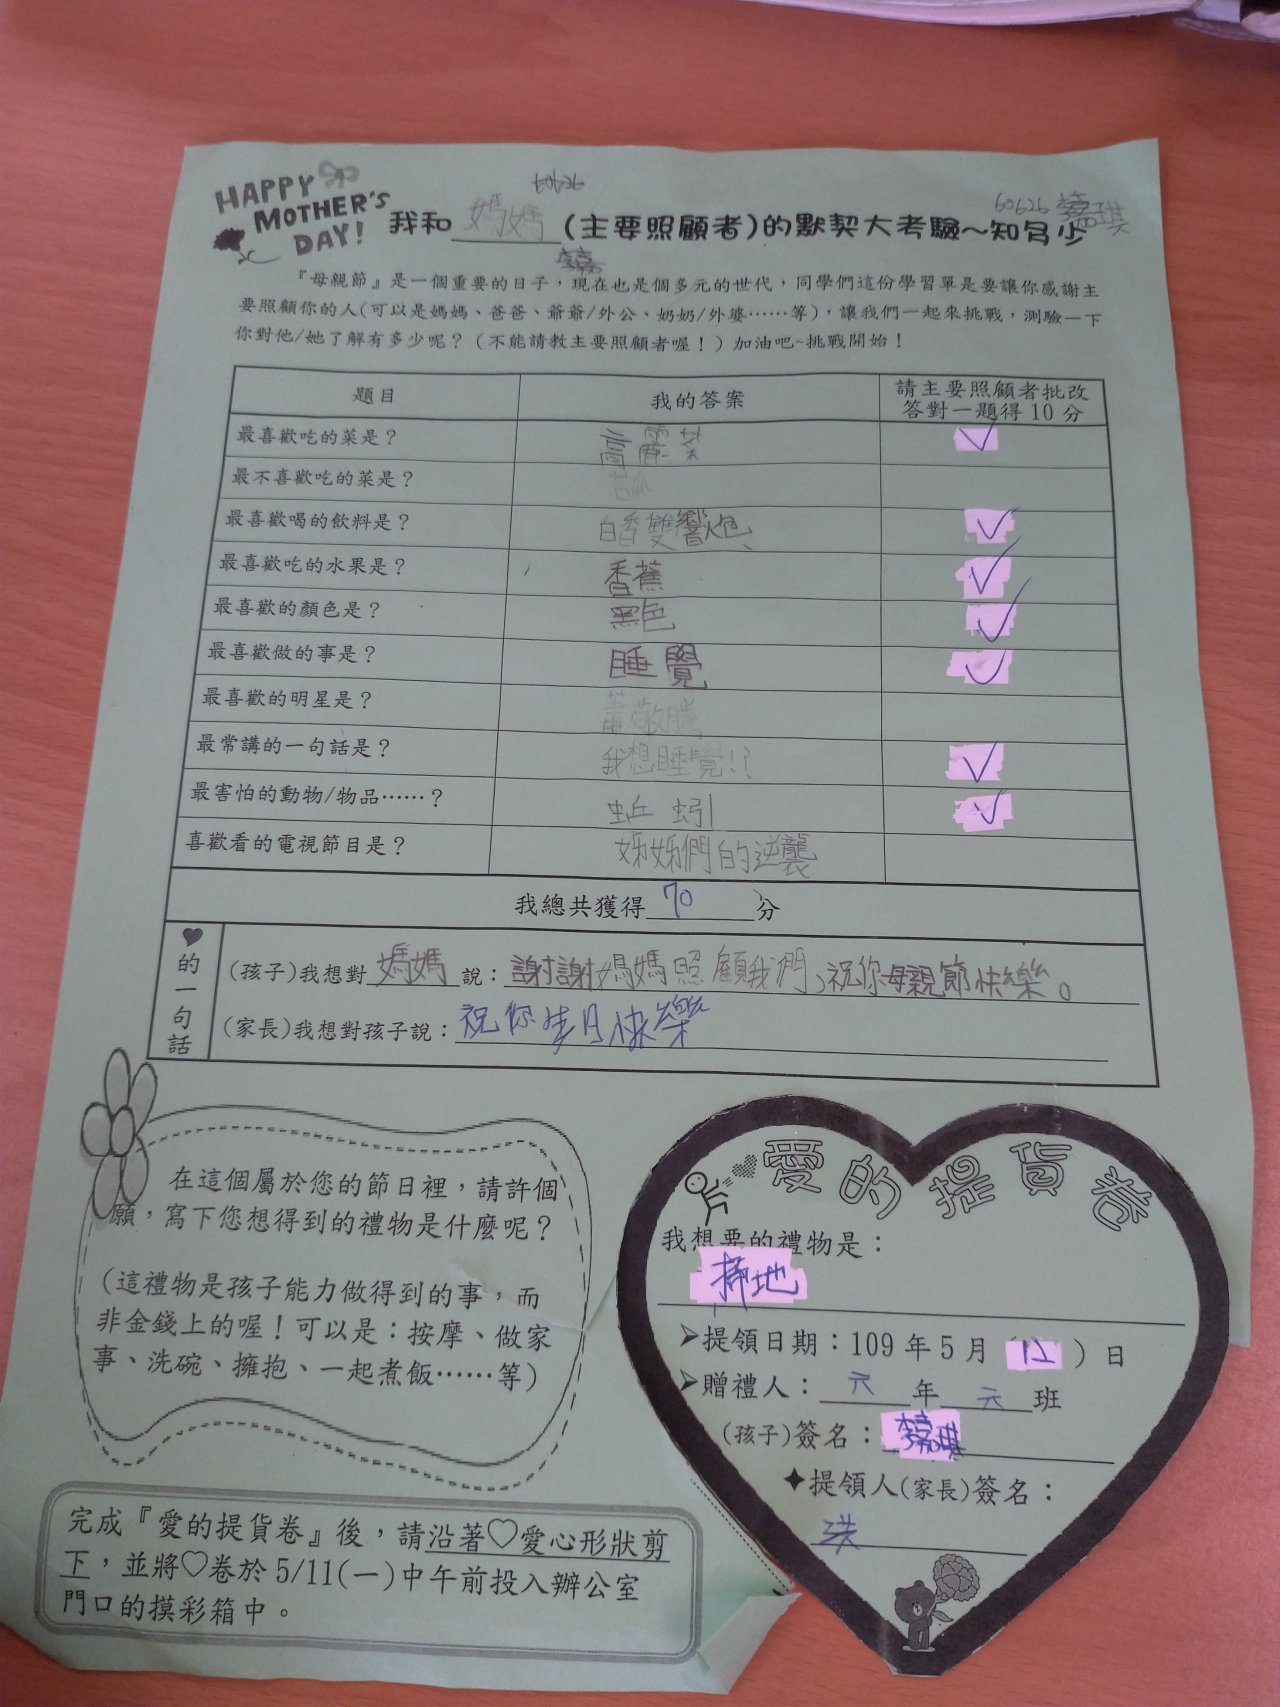 HAPPY
MOTHER'S
DAY!
60626
60626
我和媽媽(主要照顧者)的默契大考驗~知多少
『母親節』是一個重要的日子，現在也是個多元的世代，同學們這份學習單是要讓你感謝主
要照顧你的人(可以是媽媽、爸爸、爺爺/外公、奶奶/外婆……等)，讓我們一起來挑戰，測驗一下
你對他/她了解有多少呢？（不能請教主要照顧者喔！）加油吧~挑戰開始！
題目 我的答案 請主要照顧者批改
答對一題得10分
最喜歡吃的菜是？ 高麗菜 ✓
最不喜歡吃的菜是？ 苦瓜
最喜歡喝的飲料是？ 白香雙響炮 ✓
最喜歡吃的水果是？ 香蕉 ✓
最喜歡的顏色是？ 黑色 ✓
最喜歡做的事是？ 睡覺 ✓
最喜歡的明星是？ 蕭敬騰
最常講的一句話是？ 我想睡覺!? ✓
最害怕的動物/物品……？ 蚯蚓 ✓
喜歡看的電視節目是？ 姊姊們的逆襲
我總共獲得70分
♥的一句話
(孩子)我想對媽媽說：謝謝媽媽照顧我們，祝你母親節快樂。
(家長)我想對孩子說：祝你生日快樂
在這個屬於您的節日裡，請許個
願，寫下您想得到的禮物是什麼呢？
(這禮物是孩子能力做得到的事，而
非金錢上的喔！可以是：按摩、做家
事、洗碗、擁抱、一起煮飯……等)
完成『愛的提貨卷』後，請沿著♡愛心形狀剪
下，並將♡卷於5/11(一)中午前投入辦公室
門口的摸彩箱中。
愛的提貨卷
我想要的禮物是：
掃地
➤提領日期：109年5月(12)日
➤贈禮人：六年六班
(孩子)簽名：
✦提領人(家長)簽名：
洪